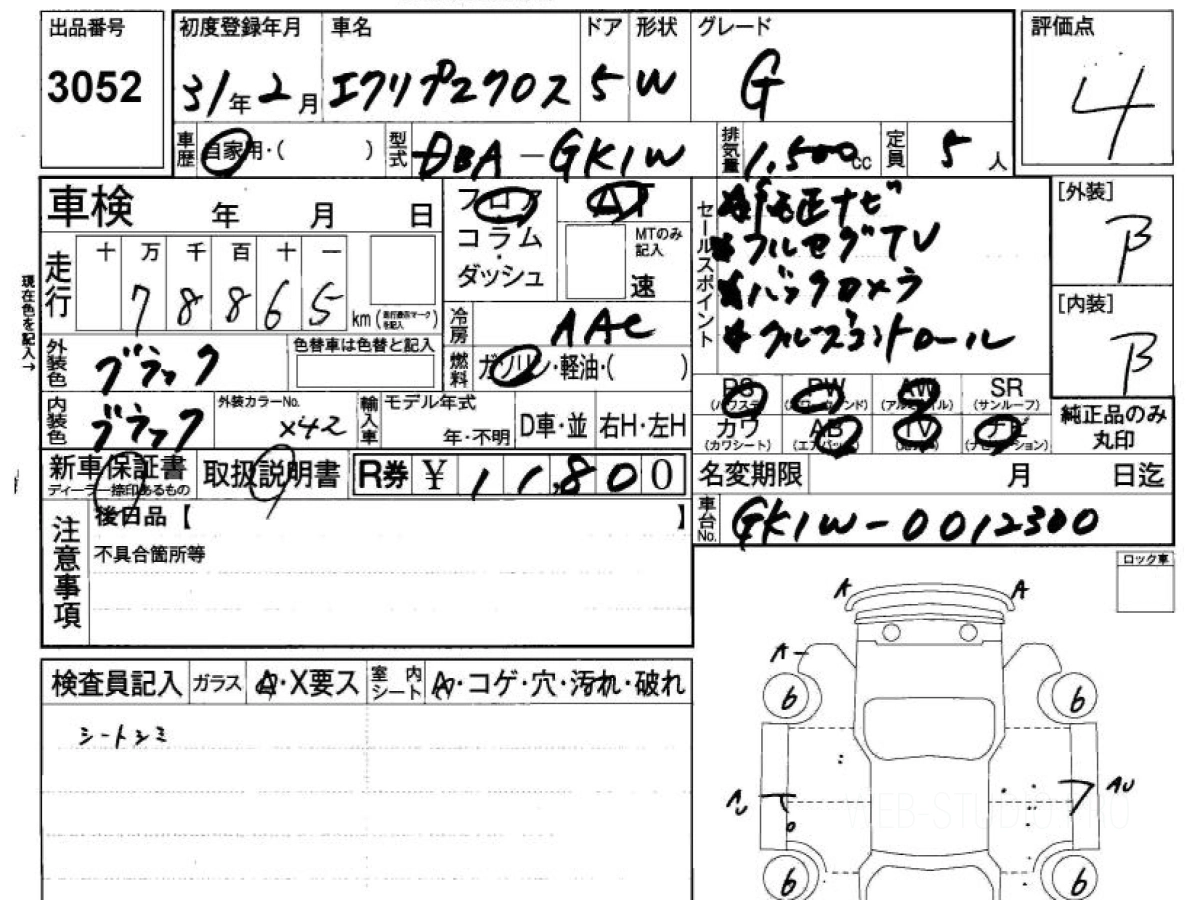 出品番号 初度登録年月 車名 ドア 形状 グレード 評価点
3052 31年2月 エクリプスクロス 5 W G 4
車歴 自家用・( ) 型式 DBA-GK1W 排気量 1,500cc 定員 5人
車検 年 月 日 フロア AT セールスポイント 純正ナビ [外装]
コラム MTのみ記入 フルセグTV B
走行 十 万 千 百 十 一 ・ダッシュ 速 バックカメラ [内装]
78865 km 冷房 AAC クルーズコントロール B
現在色を記入→
外装色 ブラック 色替車は色替と記入 燃料 ガソリン・軽油・( )
PS PW AW SR
(パワステ) (パワーウィンド) (アルミホイル) (サンルーフ)
内装色 ブラック 外装カラーNo. X42 輸入車 モデル年式 年・不明 D車・並 右H・左H カワ AB TV ナビ 純正品のみ丸印
(カワシート) (エアバック) (ナビゲーション)
新車保証書 取扱説明書 R券 ¥ 11,800 名変期限 月 日迄
ディーラー捺印あるもの
注意事項 後日品【 】 車台No. GK1W-0012300
不具合箇所等
ロック車
A A
検査員記入 ガラス A・X要ス 室内シート A・コゲ・穴・汚れ・破れ A
6 6
シートシミ
AU
6 6
WEB-STUDIO.PRO